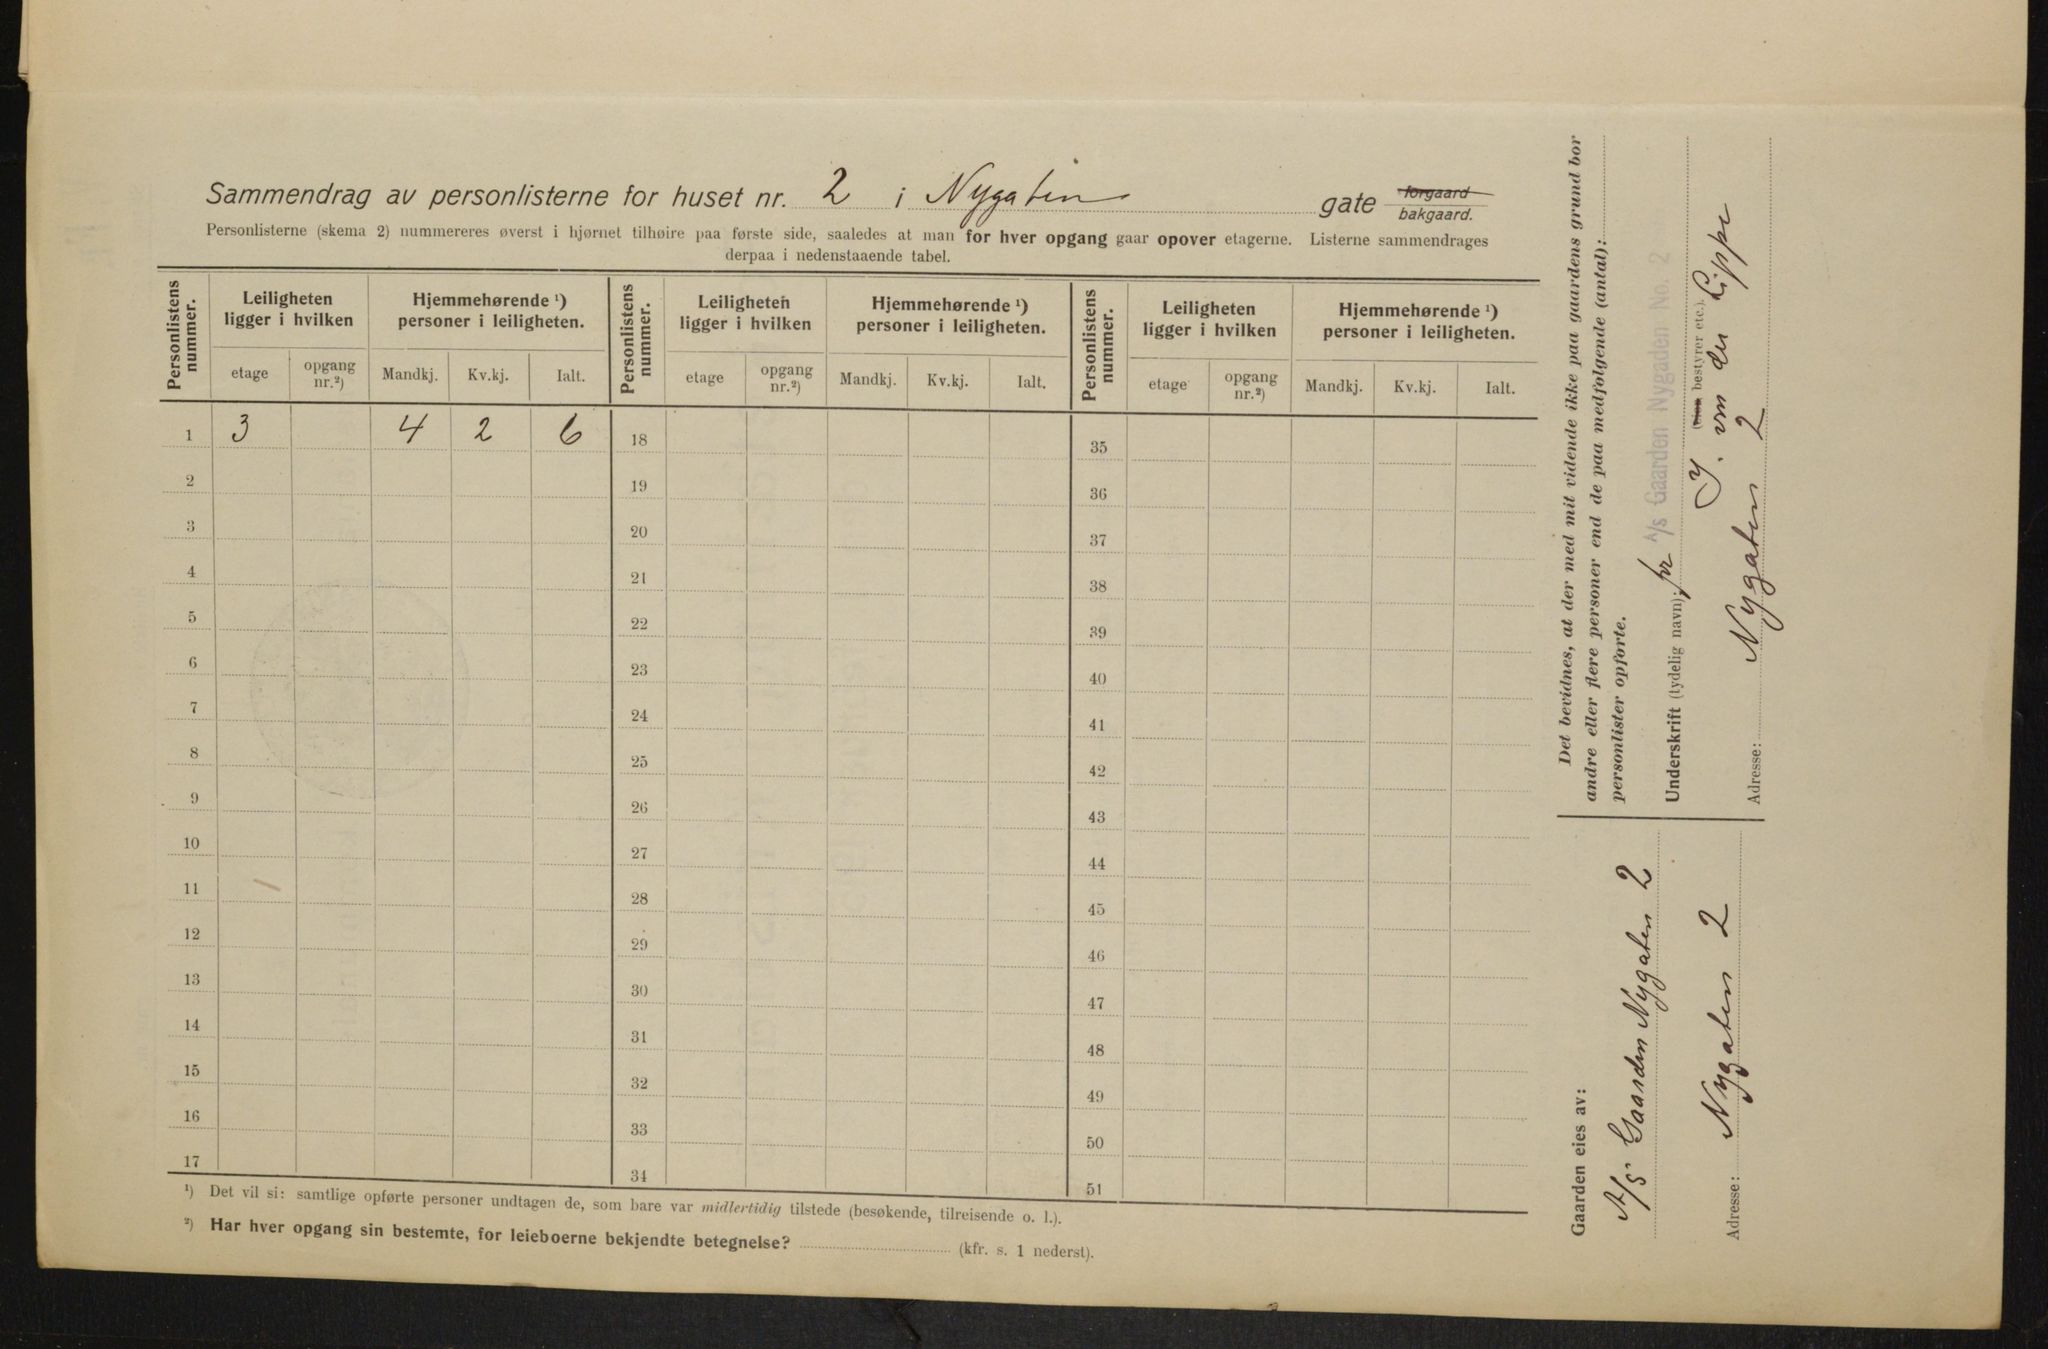 Sammendrag av personlisterne for huset nr. 2 i Nygaten gate forgaard bakgaard.
Personlisterne (skema 2) nummereres øverst i hjørnet tilhøire paa første side, saaledes at man for hver opgang gaar opover etagerne. Listerne sammendrages
derpaa i nedenstaaende tabel.
Personlistens nummer. Leiligheten ligger i hvilken Hjemmehørende ¹) personer i leiligheten. Personlistens nummer. Leiligheten ligger i hvilken Hjemmehørende ¹) personer i leiligheten. Personlistens nummer. Leiligheten ligger i hvilken Hjemmehørende ¹) personer i leiligheten.
etage opgang nr.²) Mandkj. Kv.kj. Ialt. etage opgang nr.²) Mandkj. Kv.kj. Ialt. etage opgang nr.²) Mandkj. Kv.kj. Ialt.
1 3 4 2 6 18 35
2 19 36
3 20 37
4 21 38
5 22 39
6 23 40
7 24 41
8 25 42
9 26 43
10 27 44
11 28 45
12 29 46
13 30 47
14 31 48
15 32 49
16 33 50
17 34 51
¹) Det vil si: samtlige opførte personer undtagen de, som bare var midlertidig tilstede (besøkende, tilreisende o. l.).
²) Har hver opgang sin bestemte, for leieboerne bekjendte betegnelse? (kfr. s. 1 nederst).
Det bevidnes, at der med mit vidende ikke paa gaardens grund bor
andre eller flere personer end de paa medfølgende (antal):
personlister opførte.
Underskrift (tydelig navn): pr A/s Gaarden Nygaden No. 2
(bestyrer etc.).
J. von der Lippe
Adresse: Nygaten 2
Gaarden eies av:
A/S. Gaarden Nygaten 2
Adresse: Nygaten 2